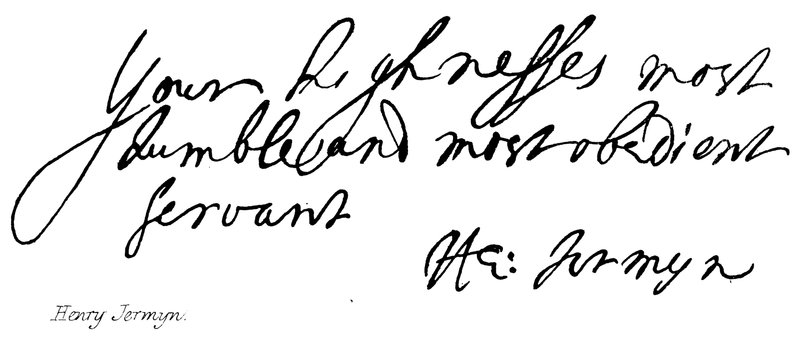 Your highnesses most
humble and most obedient
servant
He: Jermyn
Henry Jermyn.